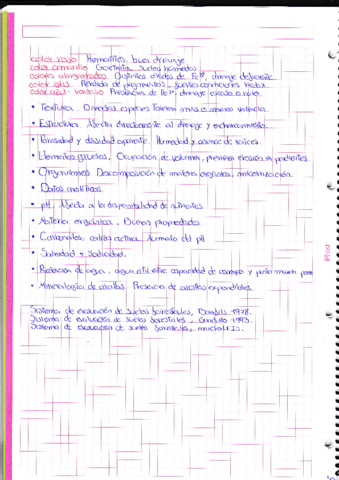 color rojo Hematites, buen drenaje
color amarillo Goetita, suelos húmedos
colores abigarrados Distintos óxidos de Fe³⁺, drenaje deficiente
color gris Pérdida de pigmentos, fuertes condiciones redox
color azul-verdoso Presencia de Fe²⁺, drenaje escaso o nulo.
• Textura. Diversas especies toleran
• Estructura. Afecta directamente al drenaje y
• Porosidad y densidad aparente. Humedad y avance de raíces.
• Elementos gruesos. Ocupación de volumen, previene erosión en pendientes.
• Organismos. Descomposición de materia orgánica,
• Datos analíticos.
• pH. Afecta a la disponibilidad de nutrientes.
• Materia orgánica. Buenas propiedades
• Carbonatos, caliza activa. Aumento del pH
• Salinidad y Sodicidad.
• Retención de agua. agua útil entre capacidad de campo y punto march perm
• Mineralogía de arcillas. Presencia de arcillas expandibles.
Sistema de evaluación de suelos forestales, 1978.
Sistema de evaluación de suelos forestales, 1993.
Sistema de evaluación de suelos forestales,